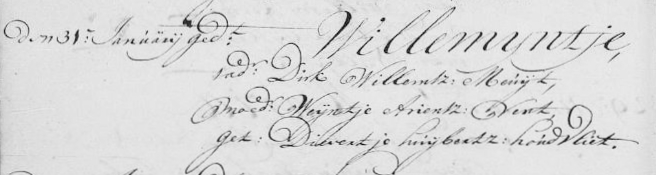 den 31:n Januarij ged:t Willemyntje,
vad:r Dirk Willemtz: Meuyt,
moed:r Weijntje Arientz: Vent,
get: Divertje huijbertz: houdvliet.